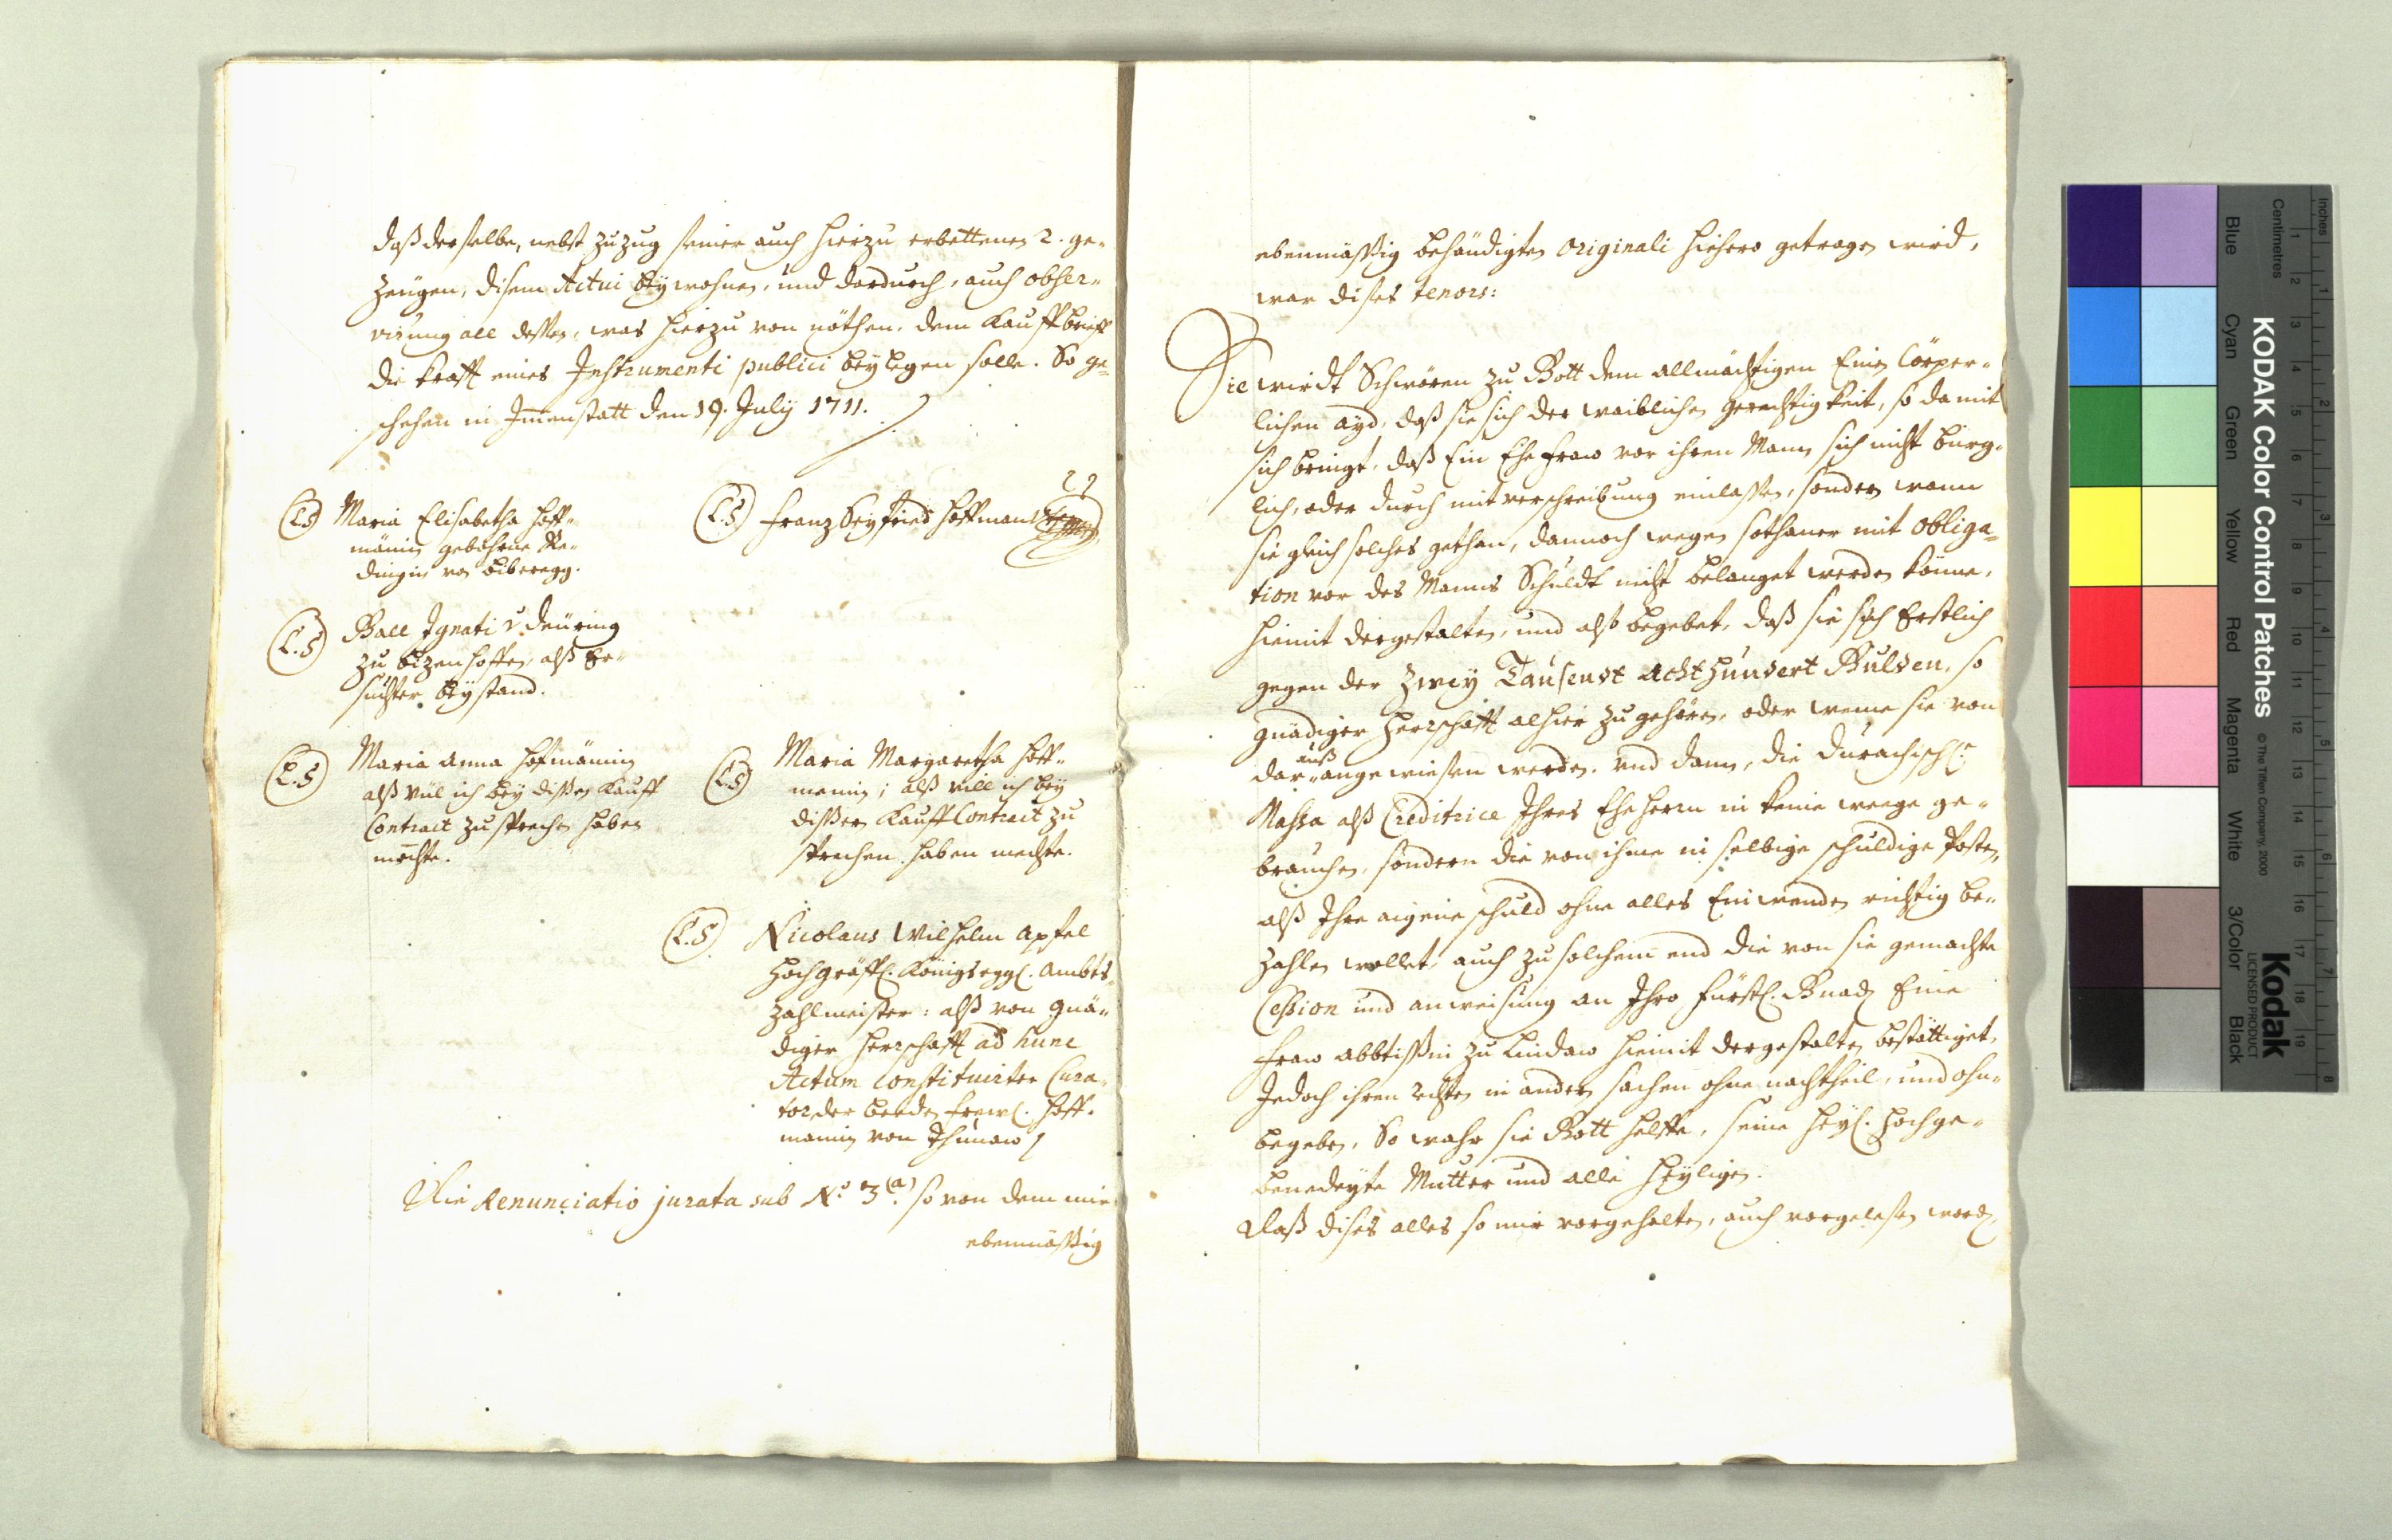 daß derselbe, nebst Zuzug seiner auch hierzu erbettenen 2. ge-
zeugen, disem Actui beÿwohnen, und dardurch, auch obser-
virung all dessen, was hierzu von nöthen, dem Kauffbrieff
die krafft eines Instrumenti publici beÿlegen solle. So ge-
schehen in Im̅enstatt den 19. Julÿ 1711.
(L.S) Maria Elisabetha Hoff-
mänin gebohrne Re-
dingin von Biberegg.
(L.S) Franz Seÿfrid Hoffman
(L.S) Gall Ignati v. Deüring
zu Bizenhoffen, alß Er-
suchter beÿstand.
(L.S) Maria Anna Hofmänin
alß vül ich beÿ dissen Kauff
Contract zu sprechen haben
möchte.
(L.S) Maria Margaretha Hoff-
manin; alß vill ich beÿ
disßen Kauff Contract zu
sprechen haben mechte.
(L.S) Nicolaus Wilhelm Apfel
Hochgräffl. Königseggl. Ambts-
zahlmeister: alß von gnä-
diger Herrschafft ad hunc
Actum constituirter Cura-
tor der beeden Frewl. Hoff-
manin von
Die Renunciatio jurata sub N.º 3.(a) so von dem mir
ebenmässig
ebenmässig behändigten Originali hiehero getragen wird,
war dises tenors:
Sie wirdt Schwören zu Gott dem allmächtigen Einen Cörper-
lichen aÿd, daß sie sich der weiblichen gerechtigkeit, so da mit
sich bringt, daß Ein Ehefraw vor ihren Mann sich nicht bürg-
lich, oder durch mitverschreibung einlassen, sondern wann
sie gleich solches gethan, dannoch wegen sothaner mit Obliga-
tion vor des Manns Schuldt nicht belanget werden könne,
hiemit dergestalten, und alß begebet, daß sie sich Erstlich
gegen der Zweÿ Tausendt Achthundert Gulden, so
gnädiger Herrschafft alhier zugehören, oder weme sie von
auß
dar-angewiesen werden. und dann, die Durachisch.e
Massa alß Creditrice Ihres Eheherrn in keine weege ge-
brauchen, sondern die von ihme in selbige schuldige Posten,
alß Ihre aigene schuld ohne alles Einwenden richtig be-
zahlen wollet, auch zu solchem end die von sie gemachte
Cession und anweisung an Ihro Fürstl. Gnad. Eine
Fraw Abbtissin zu Lindaw hiemit dergestalten bestättiget,
Jedoch ihren rechten in andern sachen ohne nachtheil, und ohn-
begeben, So wahr sie Gott helffe, seine Heÿl. Hochge-
benedeÿte Mutter und alle Heÿligen.
Daß dises alles so mir vorgehalten, auch vorgelesen word.
Inches
Centimetres
KODAK Color Control Patches
© The Tiffen Company, 2000
Kodak
LICENSED PRODUCT
Blue
Cyan
Green
Yellow
Red
Magenta
White
3/Color
Black